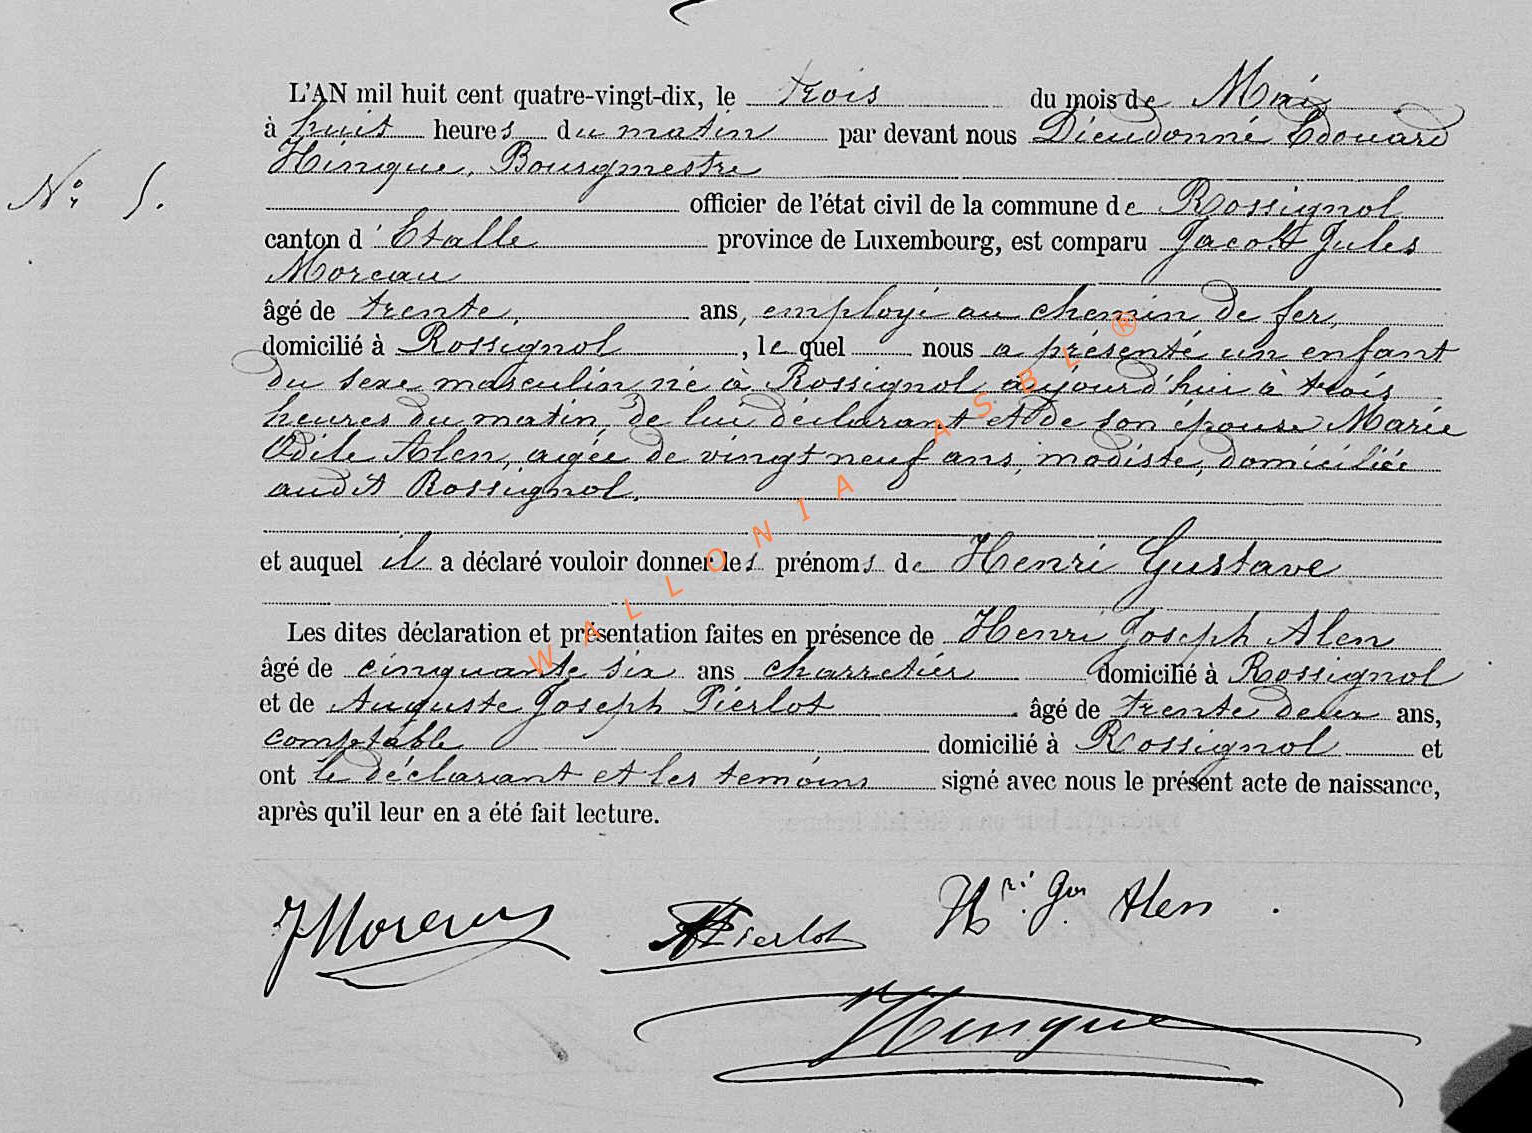 L'AN mil huit cent quatre-vingt-dix, le trois du mois de Mai
à huit heures du matin par devant nous Dieudonné Edouard
Hinque, Bourgmestre
N° 5.
officier de l'état civil de la commune de Rossignol
canton d'Etalle province de Luxembourg, est comparu Jacob Jules
Moreau
âgé de trente, ans, employé au chemin de fer,
domicilié à Rossignol, lequel nous a présenté un enfant
du sexe masculin né à Rossignol aujourd'hui à trois
heures du matin, de lui déclarant et de son épouse Marie
Odile Alen, agée de vingt neuf ans, modiste, domiciliée
audit Rossignol.
et auquel il a déclaré vouloir donner les prénoms de Henri Gustave
Les dites déclaration et présentation faites en présence de Henri Joseph Alen
âgé de cinquante six ans charretier domicilié à Rossignol
et de Auguste Joseph Pierlot âgé de trente deux ans,
comptable domicilié à Rossignol et
ont le déclarant et les temoins signé avec nous le présent acte de naissance,
après qu'il leur en a été fait lecture.
JMoreau APierlot Hri Jos Alen
Hinque
WALLONIA ASBL ®